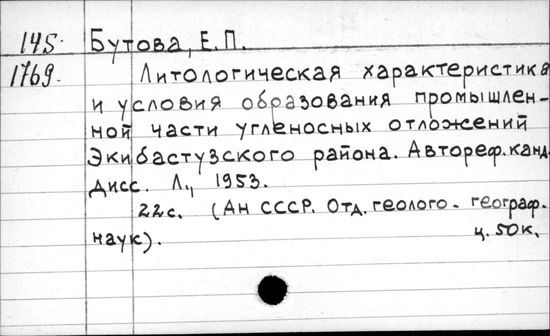 145. Бутова, Е.П.
1769. Литологическая характеристика
и условия образования промышлен-
ной части угленосных отложений
Экибастузского района. Автореф. канд.
дисс. Л., 1953.
22 с. (АН СССР. Отд. геолого-географ.
наук). ц. 50 к.